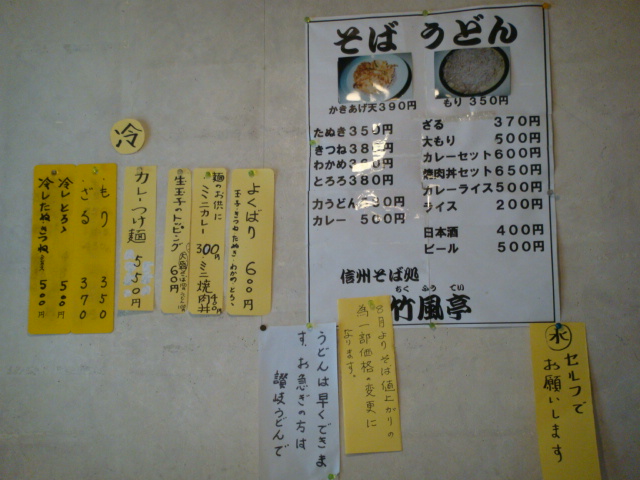 そば うどん
かきあげ天390円
もり 350円
たぬき350円
きつね380円
わかめ380円
とろろ380円
力うどん 円
カレー 500円
ざる 370円
大もり 500円
カレーセット600円
焼肉丼セット650円
カレーライス500円
ライス 200円
日本酒 400円
ビール 500円
信州そば処
ちく ふう てい
竹風亭
冷
よくばり 600円
玉子 きつね たぬき わかめ とろろ
麺のお供に
ミニカレー 300円
ミニ焼肉丼 400円
生玉子のトッピング
60円
カレーつけ麺 550円
もり 350
ざる 370
冷しとろろ 500円
冷したぬききつね 500円
8月よりそば値上がりの
為一部価格の変更に
なります。
うどんは早くできま
す。お急ぎの方は
讃岐うどんで
水 セルフで
お願いします